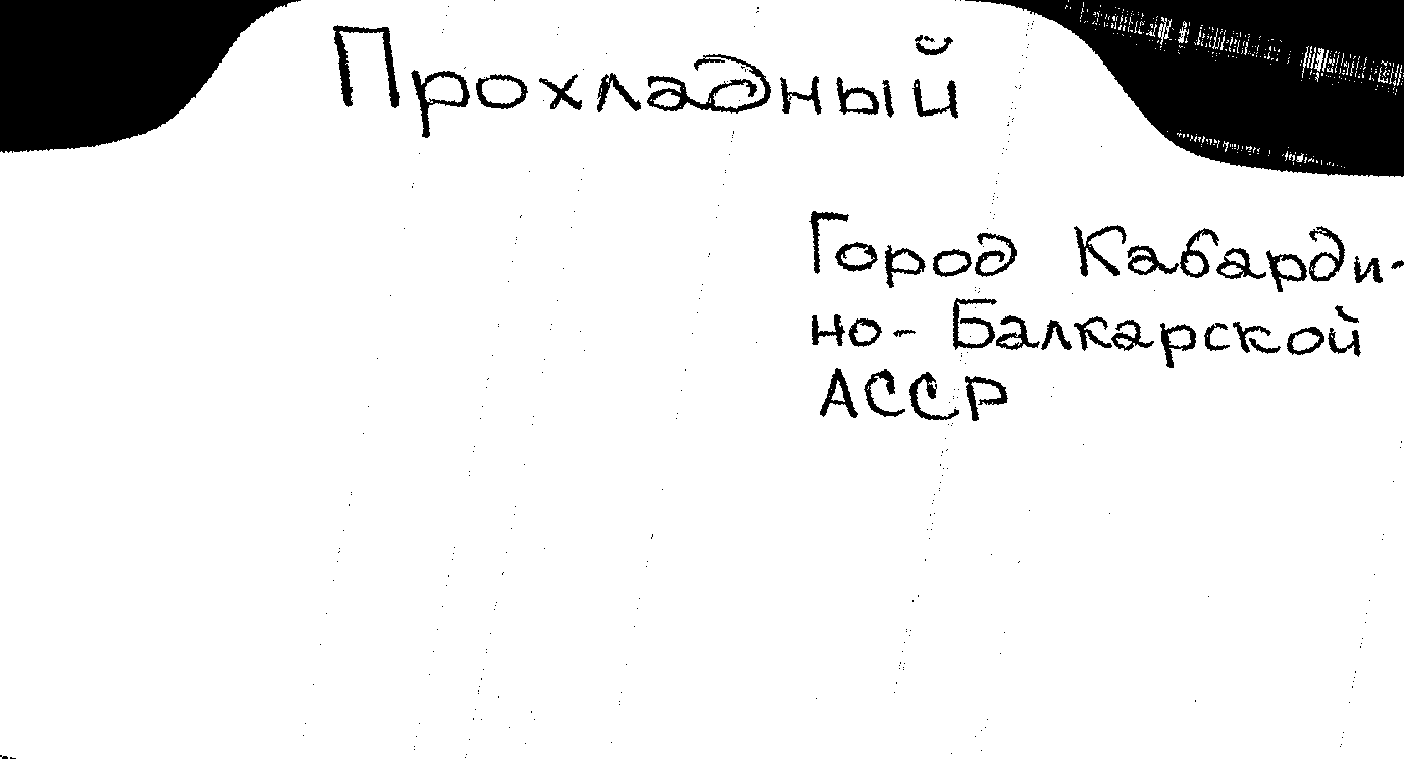 Прохладный
Город Кабарди-
но-Балкарской
АССР